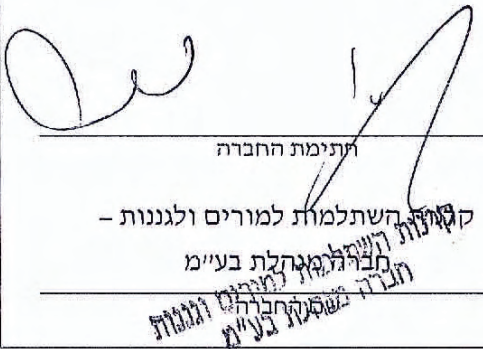 חתימת החברה
קרנות השתלמות למורים ולגננות –
חברה מנהלת בע״מ
שם החברה
קרנות השתלמות למורים וגננות
חברה מנהלת בע״מ